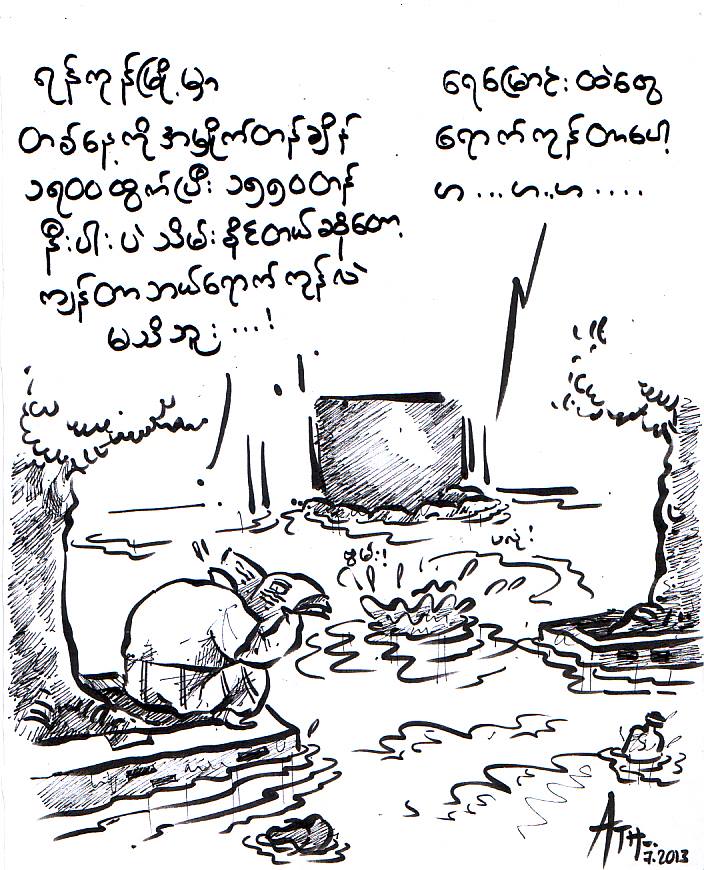 ရန်ကုန်မြို့မှာ
တစ်နေ့ကို အမှိုက်တန်ချိန်
၁၇၀၀ ထွက်ပြီး ၁၅၅၀တန်
နီးပါးပဲ သိမ်းနိုင်တယ်ဆိုတော့
ကျန်တာ ဘယ်ရောက်ကုန်လဲ
မသိဘူး ...!
ရေမြောင်းထဲတွေ
ရောက်ကုန်တာပေါ့
ဟ ... ဟ .. ဟ ....
ဗွမ်း!
ပလုံ!
ATH
7.2013